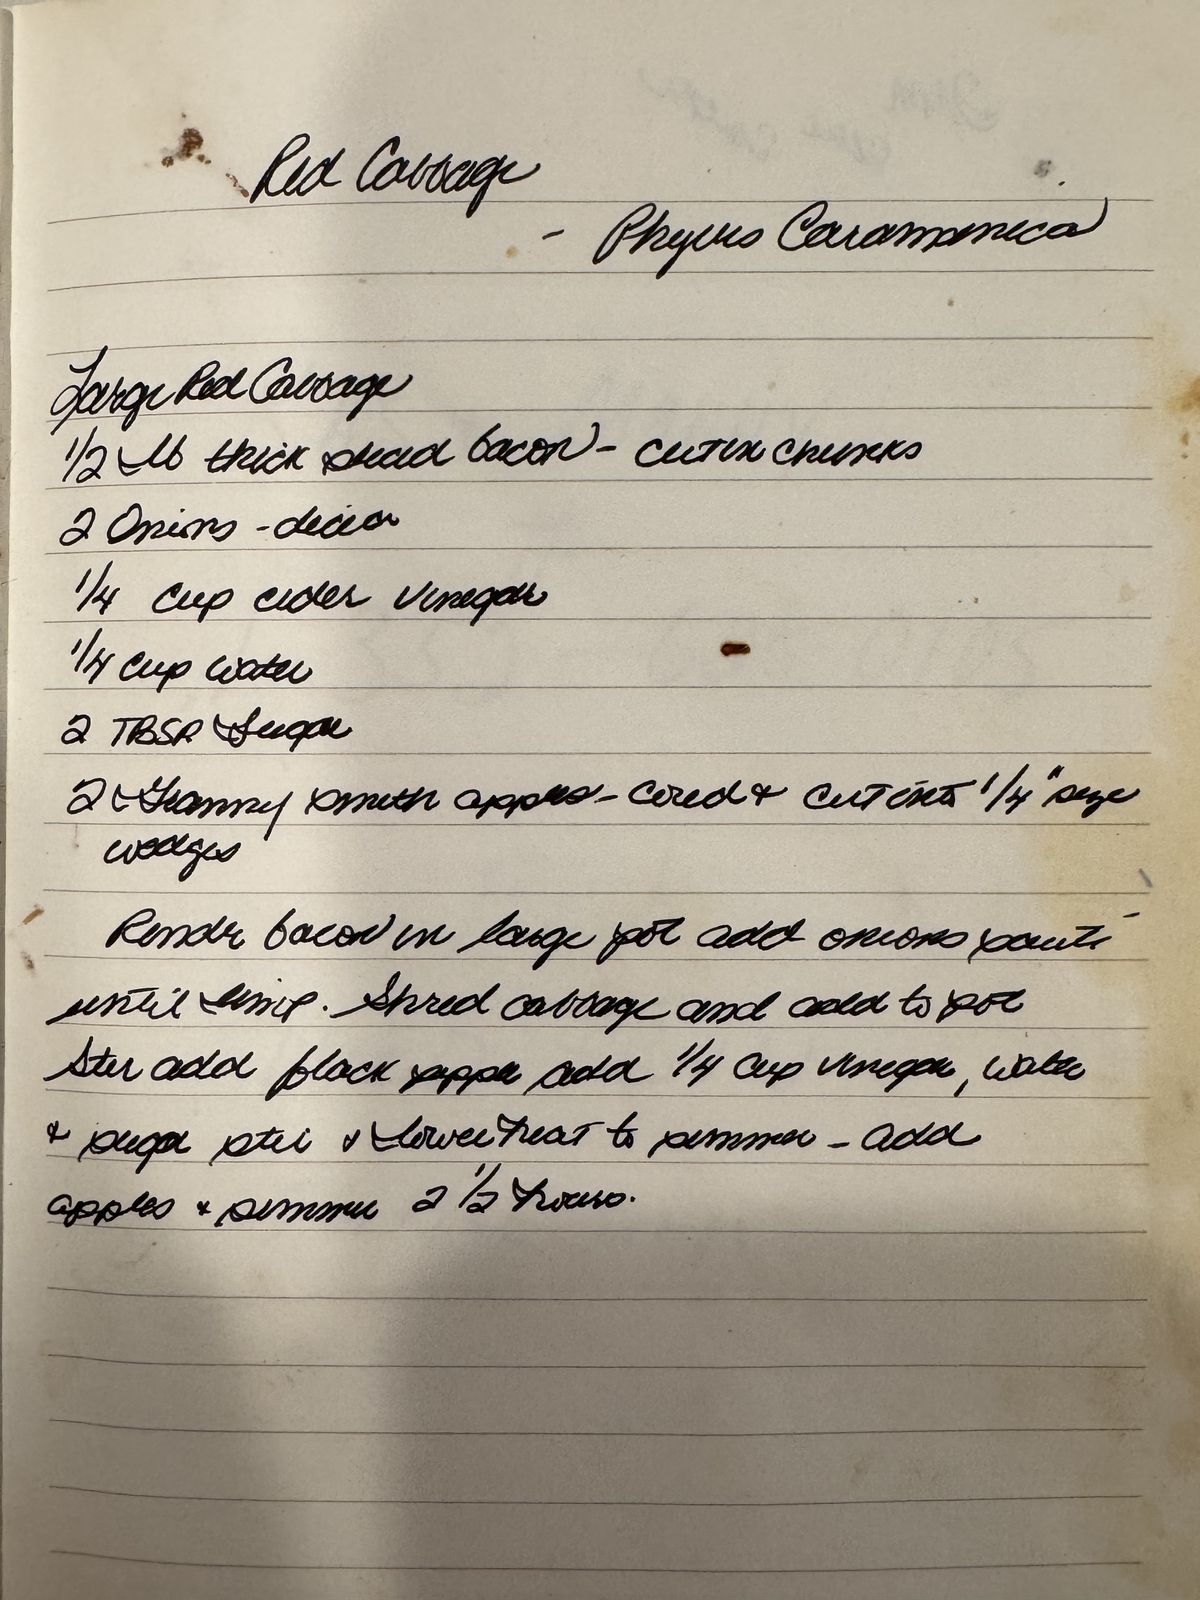 Red Cabbage
- Phyllis Caramanica
Large Red Cabbage
1/2 Lb thick sliced bacon - cut in chunks
2 Onions - diced
1/4 cup cider vinegar
1/4 cup water
2 TBSP Sugar
2 Granny smith apples - cored & cut into 1/4" size
wedges
Render bacon in large pot add onions sauté
until limp. Shred cabbage and add to pot
Stir add black pepper add 1/4 cup vinegar, water
& sugar stir & Lower heat to simmer - add
apples & simmer 2 1/2 hours.